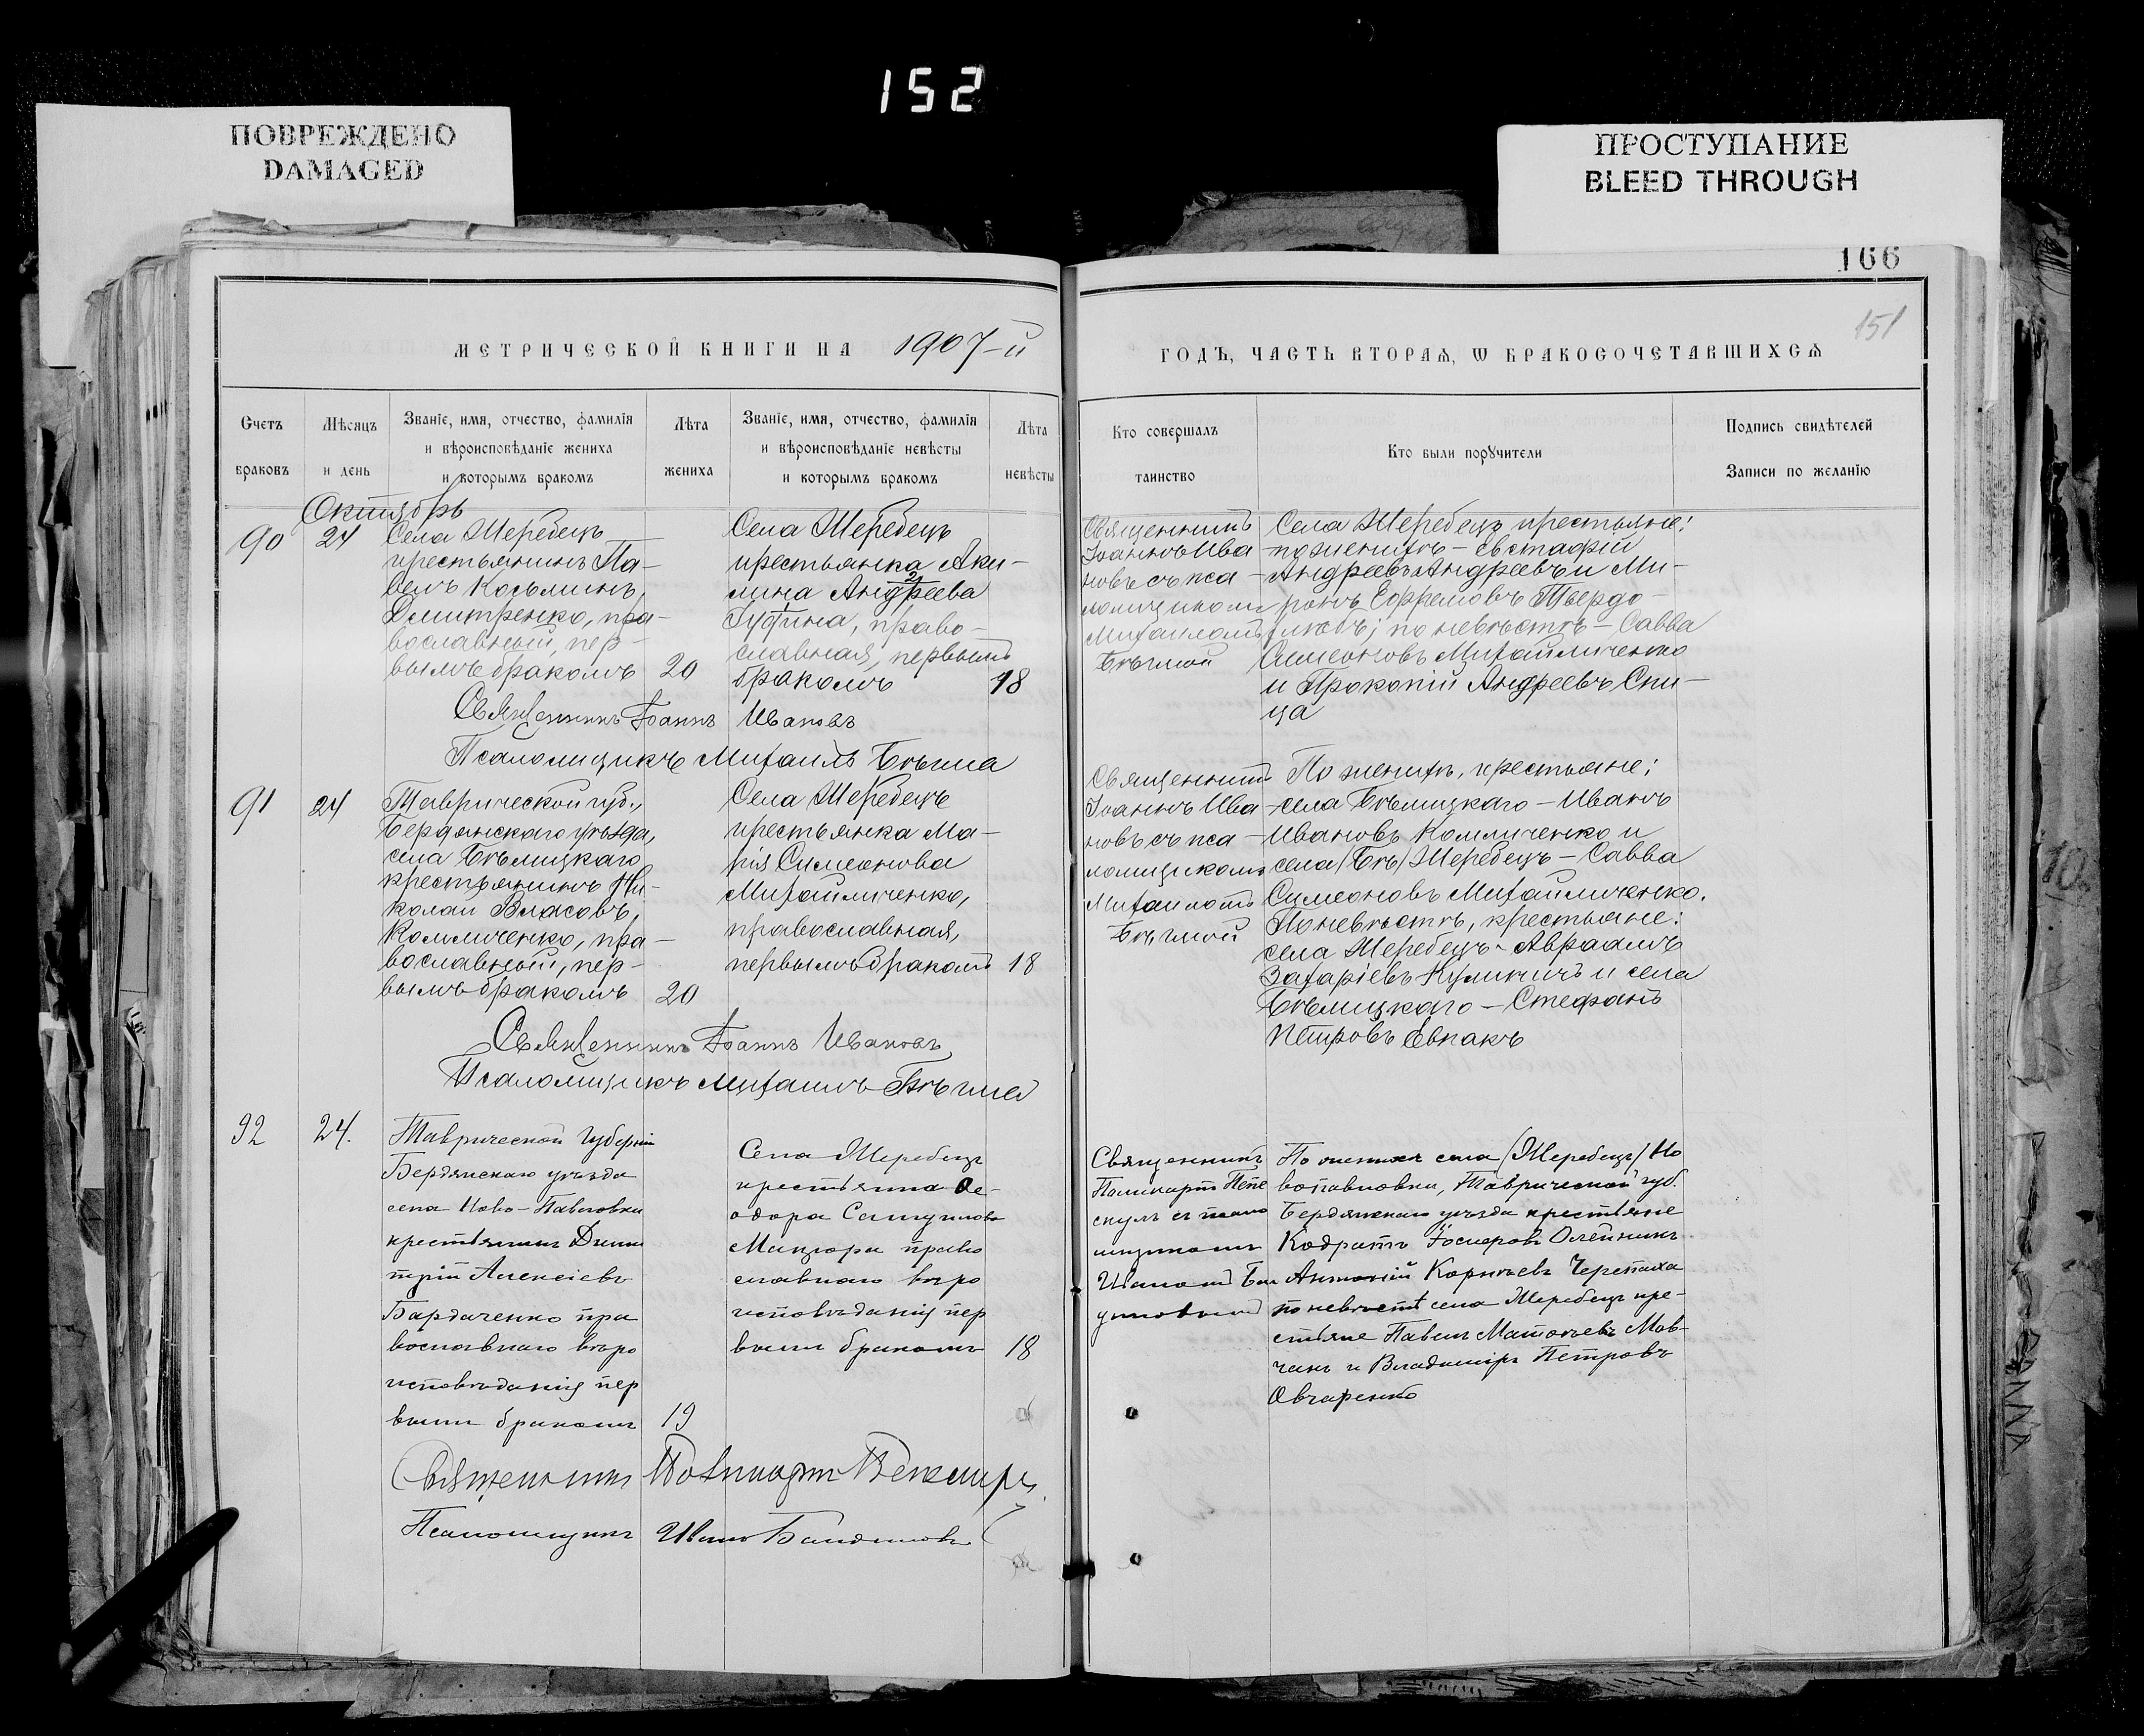 152
ПОВРЕЖДЕНО
DAMAGED
ПРОСТУПАНИЕ
BLEED THROUGH
166
151
МЕТРИЧЕСКОЙ КНИГИ НА 1907-й
ГОДЪ, ЧАСТЬ ВТОРАѦ, Ѡ БРАКОСОЧЕТАВШИХСѦ
Счетъ
браковъ
Мѣсяцъ
и день
Званіе, имя, отчество, фамилія
и вѣроисповѣданіе жениха
и которымъ бракомъ
Лѣта
жениха
Званіе, имя, отчество, фамилія
и вѣроисповѣданіе невѣсты
и которымъ бракомъ
Лѣта
невѣсты
Кто совершалъ
таинство
Кто были порꙋчители
Подпись свидѣтелей
Записи по желанію
Октябрь
90
24
Села Жеребецъ
крестьянинъ Па-
велъ Косьминъ
Дмитренко, пра-
вославный, пер-
вымъ бракомъ
20
Села Жеребецъ
крестьянка Аки-
лина Андреева
православ-
славная, первымъ
бракомъ
18
Священникъ
Іоаннъ Ива-
новъ съ пса-
ломщикомъ
Михаиломъ
Бѣгмой
Села Жеребецъ крестьяне:
по женихѣ – Евстафій
Андреевъ Андреевъ и Ми-
ронъ Ефремовъ Твердо-
хлѣбъ; по невѣстѣ – Савва
Симеоновъ Михайличенко
и Прокопій Андреевъ Спи-
ца
Священникъ Іоаннъ Ивановъ
Псаломщикъ Михаилъ Бѣгма
91
24
Таврической губ.,
Бердянскаго уѣзда,
села Бѣлицкаго
крестьянинъ Ни-
колай Власовъ,
Комличенко, пра-
вославный, пер-
вымъ бракомъ
20
Села Жеребецъ
крестьянка Ма-
рія Симеонова
Михайличенко,
православная,
первымъ бракомъ
18
Священникъ
Іоаннъ Ива-
новъ съ пса-
ломщикомъ
Михаиломъ
Бѣгмой
По женихѣ, крестьяне:
села Бѣлицкаго – Иванъ
Ивановъ Комличенко и
села /Бѣ/ Жеребецъ – Савва
Симеоновъ Михайличенко.
По невѣстѣ, крестьяне:
села Жеребецъ – Авраамъ
Захаріевъ Куличичъ и села
Бѣлицкаго – Стефанъ
Петровъ Евпакъ
Священникъ Іоаннъ Ивановъ
Псаломщикъ Михаилъ Бѣгма
92
24.
Таврической Губерніи
Бердянскаго уѣзда
села Ново-Павловки
крестьянинъ Дими
трій Алексіевъ
Бардаченко пра
вославнаго вѣро
исповѣданія пер
вымъ бракомъ
19
Села Жеребецъ
крестьянка Ѳе-
одора Самуилова
православ
славнаго вѣро
исповѣданія пер
вымъ бракомъ
18
Священникъ
Поликарпъ
съ псало
мщикомъ
Иваномъ
По женихѣ села /Жеребецъ/ Но
вопавловки, Таврической губ.
Бердянскаго уѣзда крестьяне
Кодратъ Олейникъ
Антоній Корнѣевъ Черепаха
по невѣстѣ села Жеребецъ кре-
стьяне Павелъ Матѳѣевъ Мов-
чанъ и Владиміръ Петровъ
Овчаренко
Священникъ Поликарпъ
Псаломщикъ Иванъ